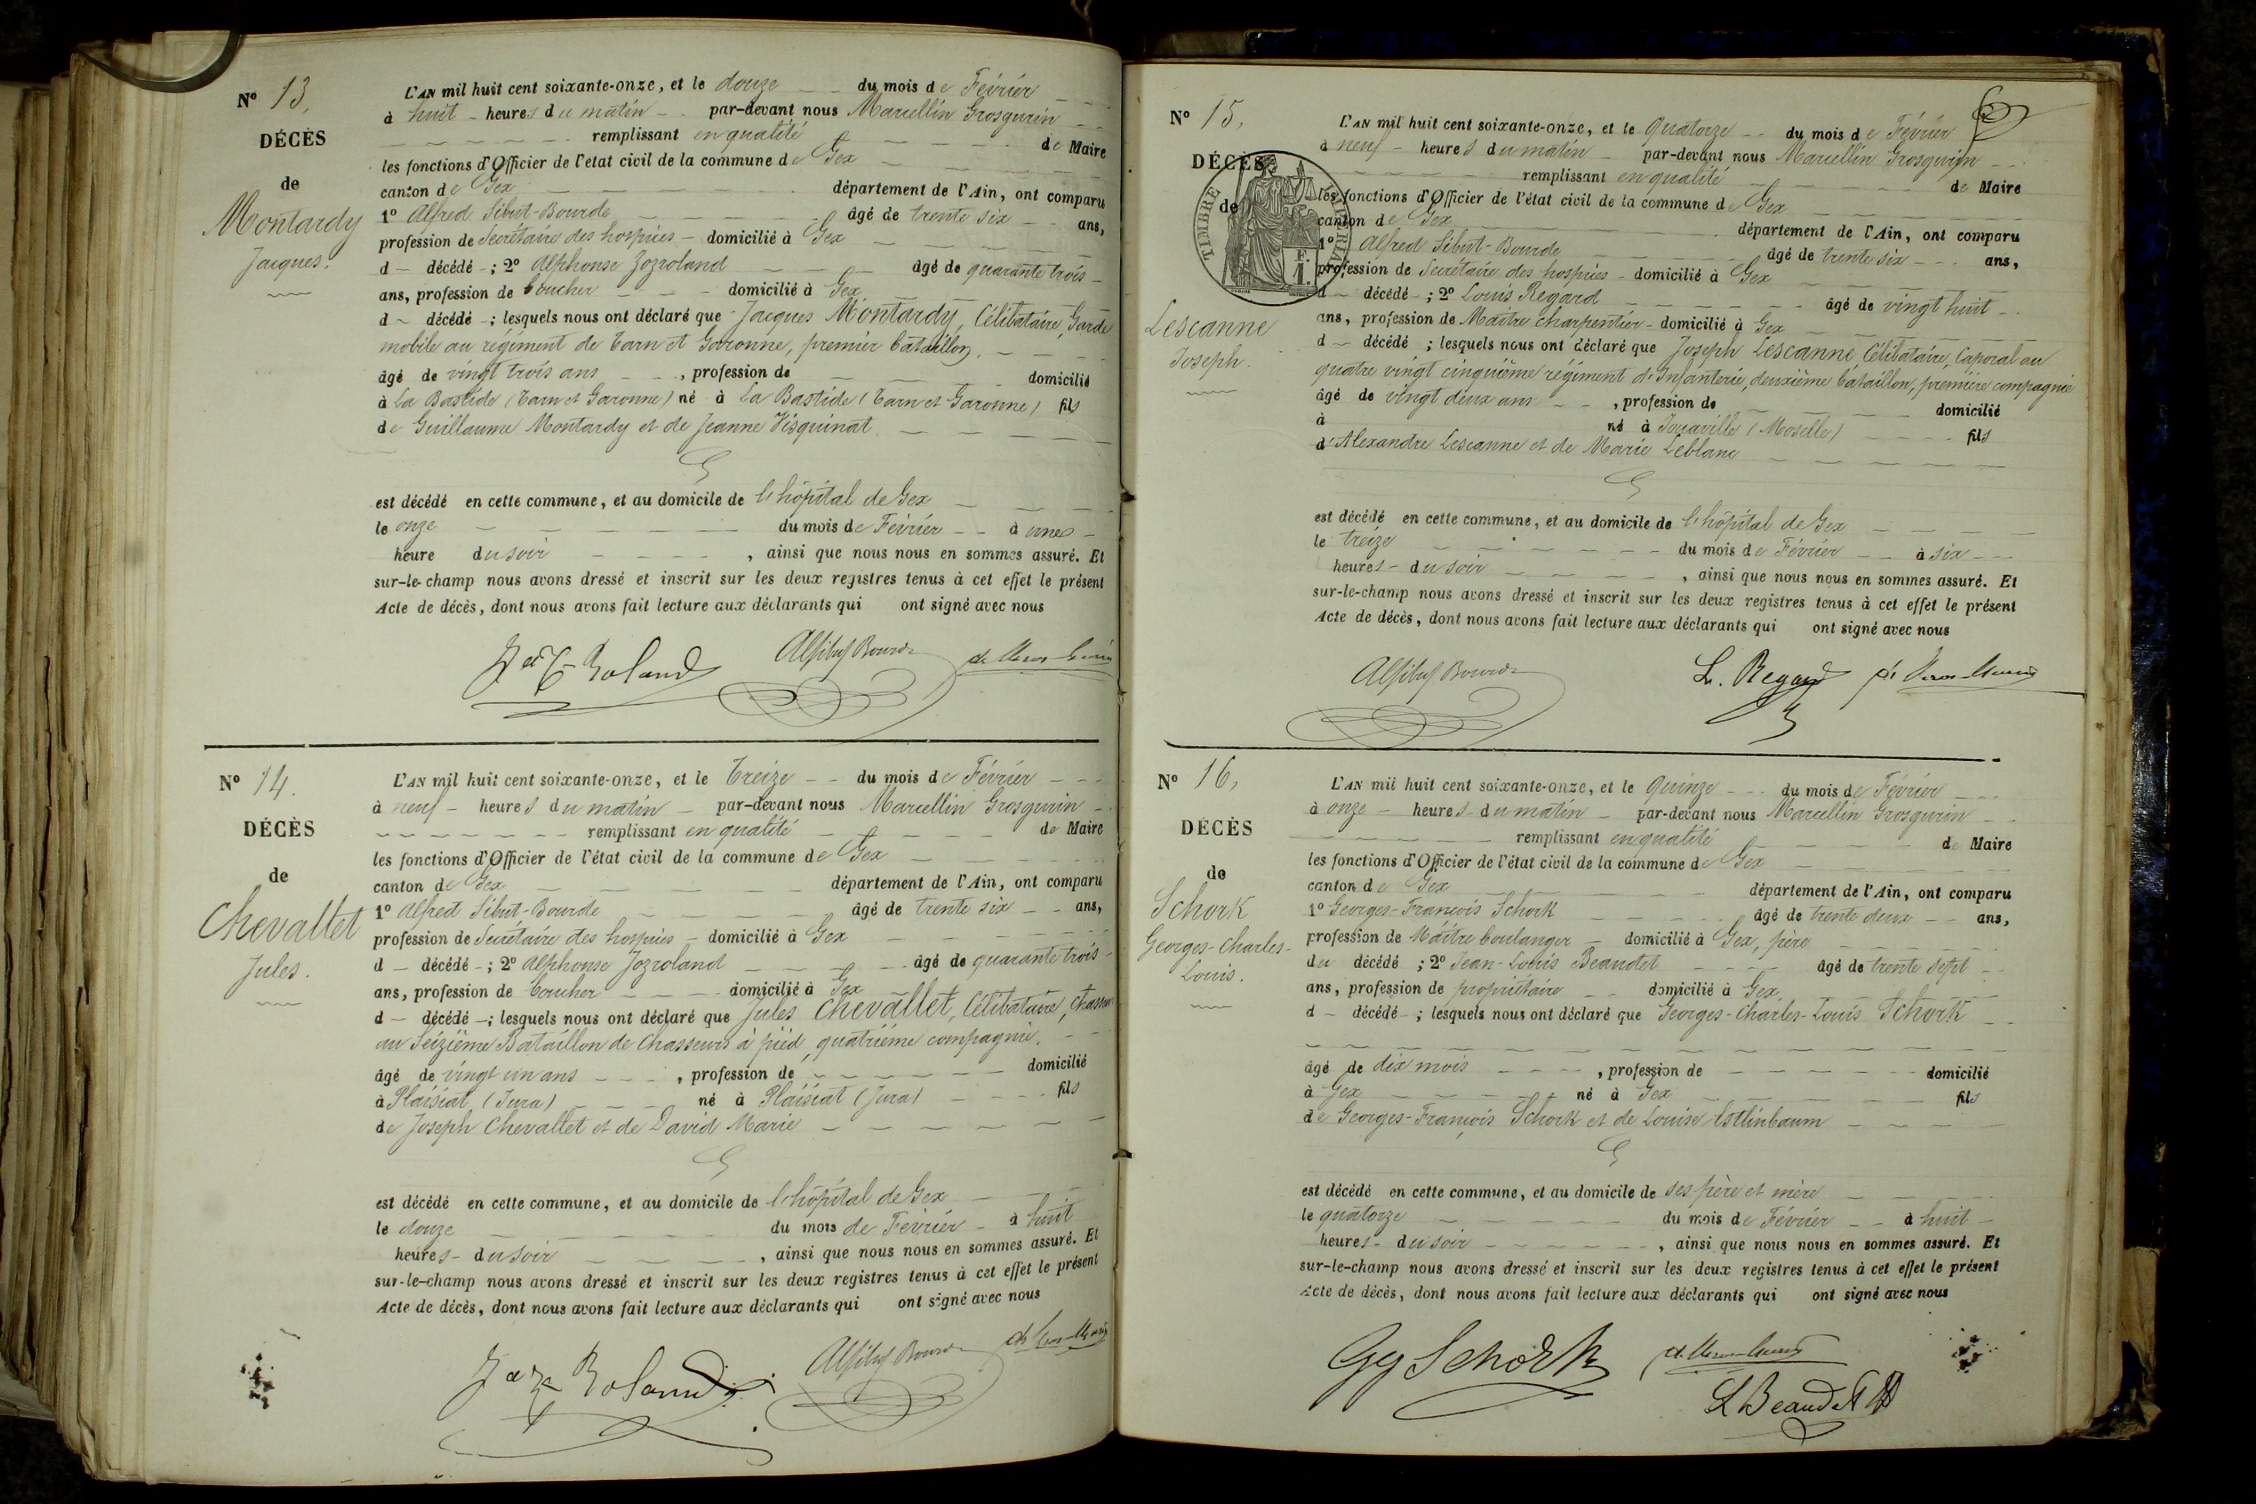 Nº 13.
DÉCÈS
de
Montardy
Jacques.
L'AN mil huit cent soixante-onze, et le douze du mois de Février
à huit heures du matin par-devant nous Marcellin Grosgurin
remplissant en qualité de Maire
les fonctions d'Officier de l'état civil de la commune de Gex
canton de Gex département de l'Ain, ont comparu
1º Alfred Sibut-Bourde âgé de trente six ans,
profession de Secrétaire des hospices domicilié à Gex
d décédé ; 2º Alphonse Jozroland âgé de quarante trois
ans, profession de boucher domicilié à Gex
d décédé ; lesquels nous ont déclaré que Jacques Montardy, Célibataire, Garde
mobile au régiment de Tarn et Garonne, premier bataillon,
âgé de vingt trois ans , profession de domicilié
à La Bastide (Tarn et Garonne) né à La Bastide (Tarn et Garonne) fils
de Guillaume Montardy et de Jeanne Visquinat
est décédé en cette commune, et au domicile de l'hôpital de Gex
le onze du mois de Février à une
heure du soir , ainsi que nous nous en sommes assuré. Et
sur-le-champ nous avons dressé et inscrit sur les deux registres tenus à cet effet le présent
Acte de décès, dont nous avons fait lecture aux déclarants qui ont signé avec nous
Roland Bourde
Nº 14.
DÉCÈS
de
Chevallet
Jules.
L'AN mil huit cent soixante-onze, et le Treize du mois de Février
à neuf heures du matin par-devant nous Marcellin Grosgurin
remplissant en qualité de Maire
les fonctions d'Officier de l'état civil de la commune de Gex
canton de Gex département de l'Ain, ont comparu
1º Alfred Sibut-Bourde âgé de trente six ans,
profession de Secrétaire des hospices domicilié à Gex
d décédé ; 2º Alphonse Jozroland âgé de quarante trois
ans, profession de boucher domicilié à Gex
d décédé ; lesquels nous ont déclaré que Jules Chevallet, Célibataire, Chasseur
au Seizième Bataillon de Chasseurs à pied, quatrième compagnie,
âgé de vingt un ans , profession de domicilié
à Plaisiat (Jura) né à Plaisiat (Jura) fils
de Joseph Chevallet et de David Marie
est décédé en cette commune, et au domicile de l'hôpital de Gex
le douze du mois de Février à huit
heures du soir , ainsi que nous nous en sommes assuré. Et
sur-le-champ nous avons dressé et inscrit sur les deux registres tenus à cet effet le présent
Acte de décès, dont nous avons fait lecture aux déclarants qui ont signé avec nous
Roland Bourde
Nº 15.
DÉCÈS
de
TIMBRE IMPÉRIAL
1 F.
Lescanne
Joseph.
L'AN mil huit cent soixante-onze, et le quatorze du mois de Février
à neuf heures du matin par-devant nous Marcellin Grosgurin
remplissant en qualité de Maire
les fonctions d'Officier de l'état civil de la commune de Gex
canton de Gex département de l'Ain, ont comparu
1º Alfred Sibut-Bourde âgé de trente six ans,
profession de Secrétaire des hospices domicilié à Gex
d décédé ; 2º Louis Regard âgé de vingt huit
ans, profession de Maître charpentier domicilié à Gex
d décédé ; lesquels nous ont déclaré que Joseph Lescanne, Célibataire, Caporal au
quatre vingt cinquième régiment d'Infanterie, deuxième bataillon, première compagnie
âgé de vingt deux ans , profession de domicilié
à né à Jouaville (Moselle) fils
d'Alexandre Lescanne et de Marie Leblanc
est décédé en cette commune, et au domicile de l'hôpital de Gex
le treize du mois de Février à six
heures du soir , ainsi que nous nous en sommes assuré. Et
sur-le-champ nous avons dressé et inscrit sur les deux registres tenus à cet effet le présent
Acte de décès, dont nous avons fait lecture aux déclarants qui ont signé avec nous
Bourde L. Regard
Nº 16.
DÉCÈS
de
Schork
Georges-Charles-
Louis.
L'AN mil huit cent soixante-onze, et le quinze du mois de Février
à onze heures du matin par-devant nous Marcellin Grosgurin
remplissant en qualité de Maire
les fonctions d'Officier de l'état civil de la commune de Gex
canton de Gex département de l'Ain, ont comparu
1º Georges-François Schork âgé de trente deux ans,
profession de Maître boulanger domicilié à Gex, père
du décédé ; 2º Jean-Louis Beaudet âgé de trente sept
ans, profession de propriétaire domicilié à Gex
d décédé ; lesquels nous ont déclaré que Georges-Charles-Louis Schork
âgé de dix mois , profession de domicilié
à Gex né à Gex fils
de Georges-François Schork et de Louise Estlinbaum
est décédé en cette commune, et au domicile de ses père et mère
le quatorze du mois de Février à huit
heures du soir , ainsi que nous nous en sommes assuré. Et
sur-le-champ nous avons dressé et inscrit sur les deux registres tenus à cet effet le présent
Acte de décès, dont nous avons fait lecture aux déclarants qui ont signé avec nous
Gg Schork
L Beaudet